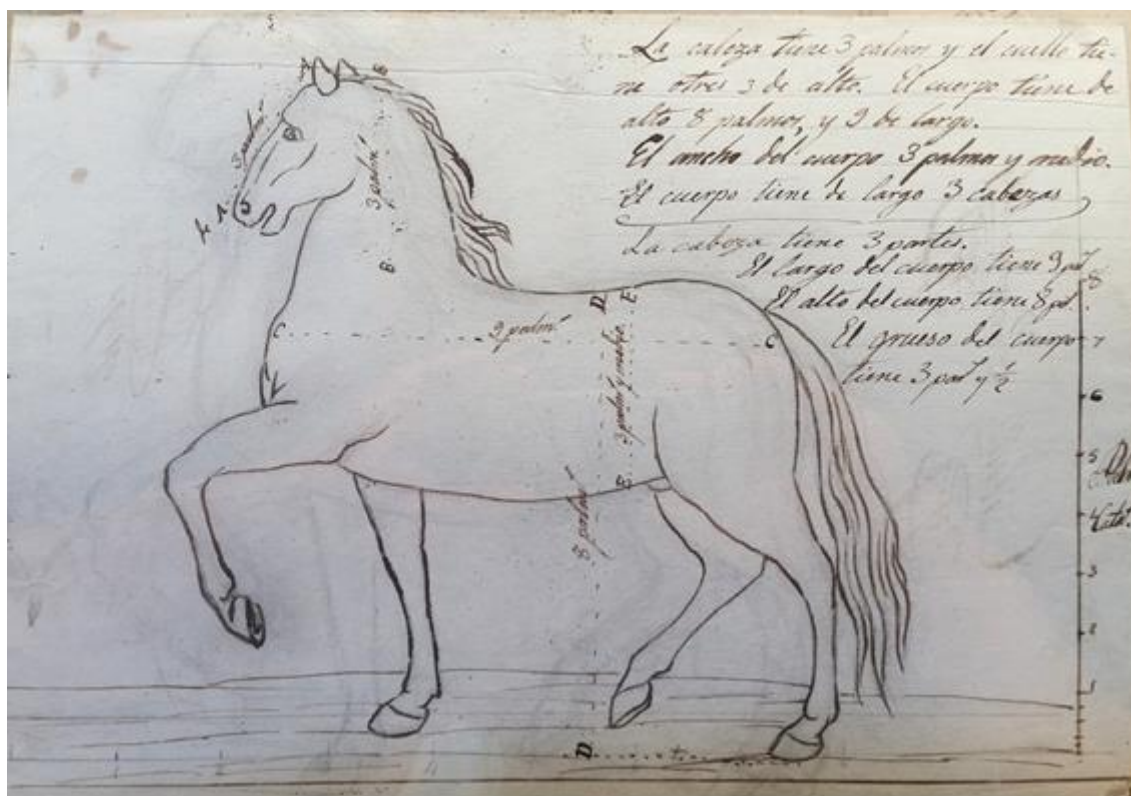 La cabeza tiene 3 palmos y el cuello tie-
ne otres 3 de alto. El cuerpo tiene de
alto 8 palmos, y 9 de largo.
El ancho del cuerpo 3 palmos y medio.
El cuerpo tiene de largo 3 cabezas
La cabeza tiene 3 partes.
El largo del cuerpo tiene 9 pal.
El alto del cuerpo tiene 8 pal.
El grueso del cuerpo
tiene 3 pal y 1/2
A
B
3 palm.s
3 palm.s
A
B
C
9 palm.s
C
D
E
3 palm.s y medio
E
8 palm.s
D
8
7
6
5
4
3
2
1